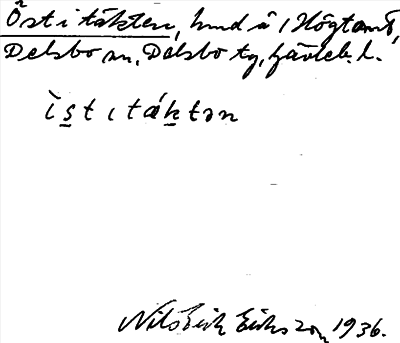 Öst i täkten, hmd å (Högtomt,
Delsbo sn, Delsbo tg, Gävleb. l.
ìstıtáktən
Nils Erik Eriksson 1936.